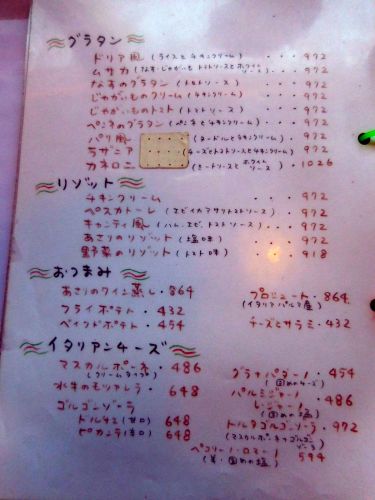 グラタン
ドリア風(ライスとチキンクリーム)・・・972
ムサカ(なす・じゃがいも トマトソースとホワイトソース)・・・972
なすのグラタン(トマトソース)・・・972
じゃがいものクリーム(チキンクリーム)・・・972
じゃがいものトマト(トマトソース)・・・972
ペンネのグラタン(ペンネとチキンクリーム)・・972
パリ風(ヌードルとチキンクリーム)・・・972
ラザニア(チーズとトマトソースとチキンクリーム)・・972
カネロニ(ミートソースとホワイトソース)・・1026
リゾット
チキンクリーム・・・972
ペスカトーレ(エビイカアサリトマトソース)・・972
キャンティ風(ハム、エビ、トマトソース)・・・972
あさりのリゾット(塩味)・・972
野菜のリゾット(トマト味)・・918
おつまみ
あさりのワイン蒸し・864
フライポテト・432
ベイクドポテト・454
プロシュート・864
(イタリアパルマ産)
チーズとサラミ・432
イタリアンチーズ
マスカルポーネ・486
(クリームタイプ)
水牛のモツァレラ・648
ゴルゴンゾーラ
ドルチェ(甘口)648
ピカンテ(辛口)648
グラナパダーノ・454
(固めのチーズ)
パルミジャーノ
レジャーノ・486
(固めの塩)
トルタゴルゴンゾーラ・972
(マスカルポーネとゴルゴンゾーラ)
ペコリーノ・ロマーノ
(羊・固めの塩)594